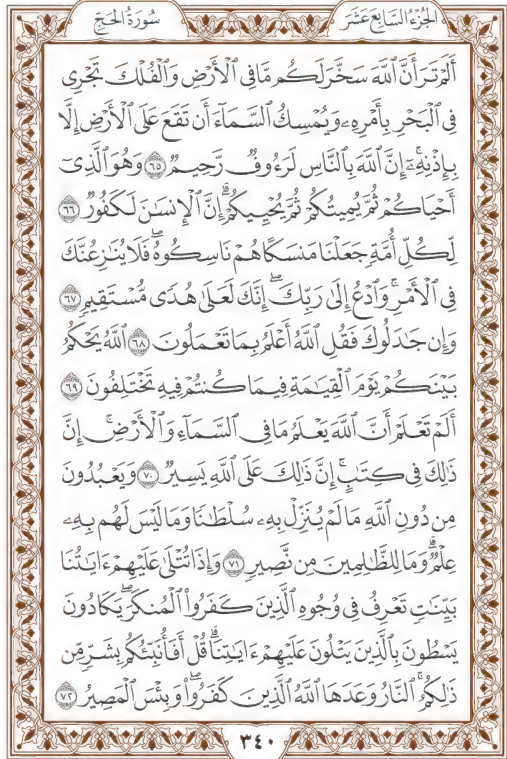 الجُزءُ السَّابِعَ عَشَرَ
سُورَةُ الحَجِّ
أَلَمۡ تَرَ أَنَّ ٱللَّهَ سَخَّرَ لَكُم مَّا فِي ٱلۡأَرۡضِ وَٱلۡفُلۡكَ تَجۡرِي
فِي ٱلۡبَحۡرِ بِأَمۡرِهِۦ وَيُمۡسِكُ ٱلسَّمَآءَ أَن تَقَعَ عَلَى ٱلۡأَرۡضِ إِلَّا
بِإِذۡنِهِۦٓۚ إِنَّ ٱللَّهَ بِٱلنَّاسِ لَرَءُوفٞ رَّحِيمٞ ٦٥ وَهُوَ ٱلَّذِيٓ
أَحۡيَاكُمۡ ثُمَّ يُمِيتُكُمۡ ثُمَّ يُحۡيِيكُمۡۗ إِنَّ ٱلۡإِنسَٰنَ لَكَفُورٞ ٦٦
لِّكُلِّ أُمَّةٖ جَعَلۡنَا مَنسَكًا هُمۡ نَاسِكُوهُۖ فَلَا يُنَٰزِعُنَّكَ
فِي ٱلۡأَمۡرِۚ وَٱدۡعُ إِلَىٰ رَبِّكَۖ إِنَّكَ لَعَلَىٰ هُدٗى مُّسۡتَقِيمٖ ٦٧
وَإِن جَٰدَلُوكَ فَقُلِ ٱللَّهُ أَعۡلَمُ بِمَا تَعۡمَلُونَ ٦٨ ٱللَّهُ يَحۡكُمُ
بَيۡنَكُمۡ يَوۡمَ ٱلۡقِيَٰمَةِ فِيمَا كُنتُمۡ فِيهِ تَخۡتَلِفُونَ ٦٩
أَلَمۡ تَعۡلَمۡ أَنَّ ٱللَّهَ يَعۡلَمُ مَا فِي ٱلسَّمَآءِ وَٱلۡأَرۡضِۚ إِنَّ
ذَٰلِكَ فِي كِتَٰبٍۚ إِنَّ ذَٰلِكَ عَلَى ٱللَّهِ يَسِيرٞ ٧٠ وَيَعۡبُدُونَ
مِن دُونِ ٱللَّهِ مَا لَمۡ يُنَزِّلۡ بِهِۦ سُلۡطَٰنٗا وَمَا لَيۡسَ لَهُم بِهِۦ
عِلۡمٞۗ وَمَا لِلظَّٰلِمِينَ مِن نَّصِيرٖ ٧١ وَإِذَا تُتۡلَىٰ عَلَيۡهِمۡ ءَايَٰتُنَا
بَيِّنَٰتٖ تَعۡرِفُ فِي وُجُوهِ ٱلَّذِينَ كَفَرُواْ ٱلۡمُنكَرَۖ يَكَادُونَ
يَسۡطُونَ بِٱلَّذِينَ يَتۡلُونَ عَلَيۡهِمۡ ءَايَٰتِنَاۗ قُلۡ أَفَأُنَبِّئُكُم بِشَرّٖ مِّن
ذَٰلِكُمُۚ ٱلنَّارُ وَعَدَهَا ٱللَّهُ ٱلَّذِينَ كَفَرُواْۖ وَبِئۡسَ ٱلۡمَصِيرُ ٧٢
٣٤٠